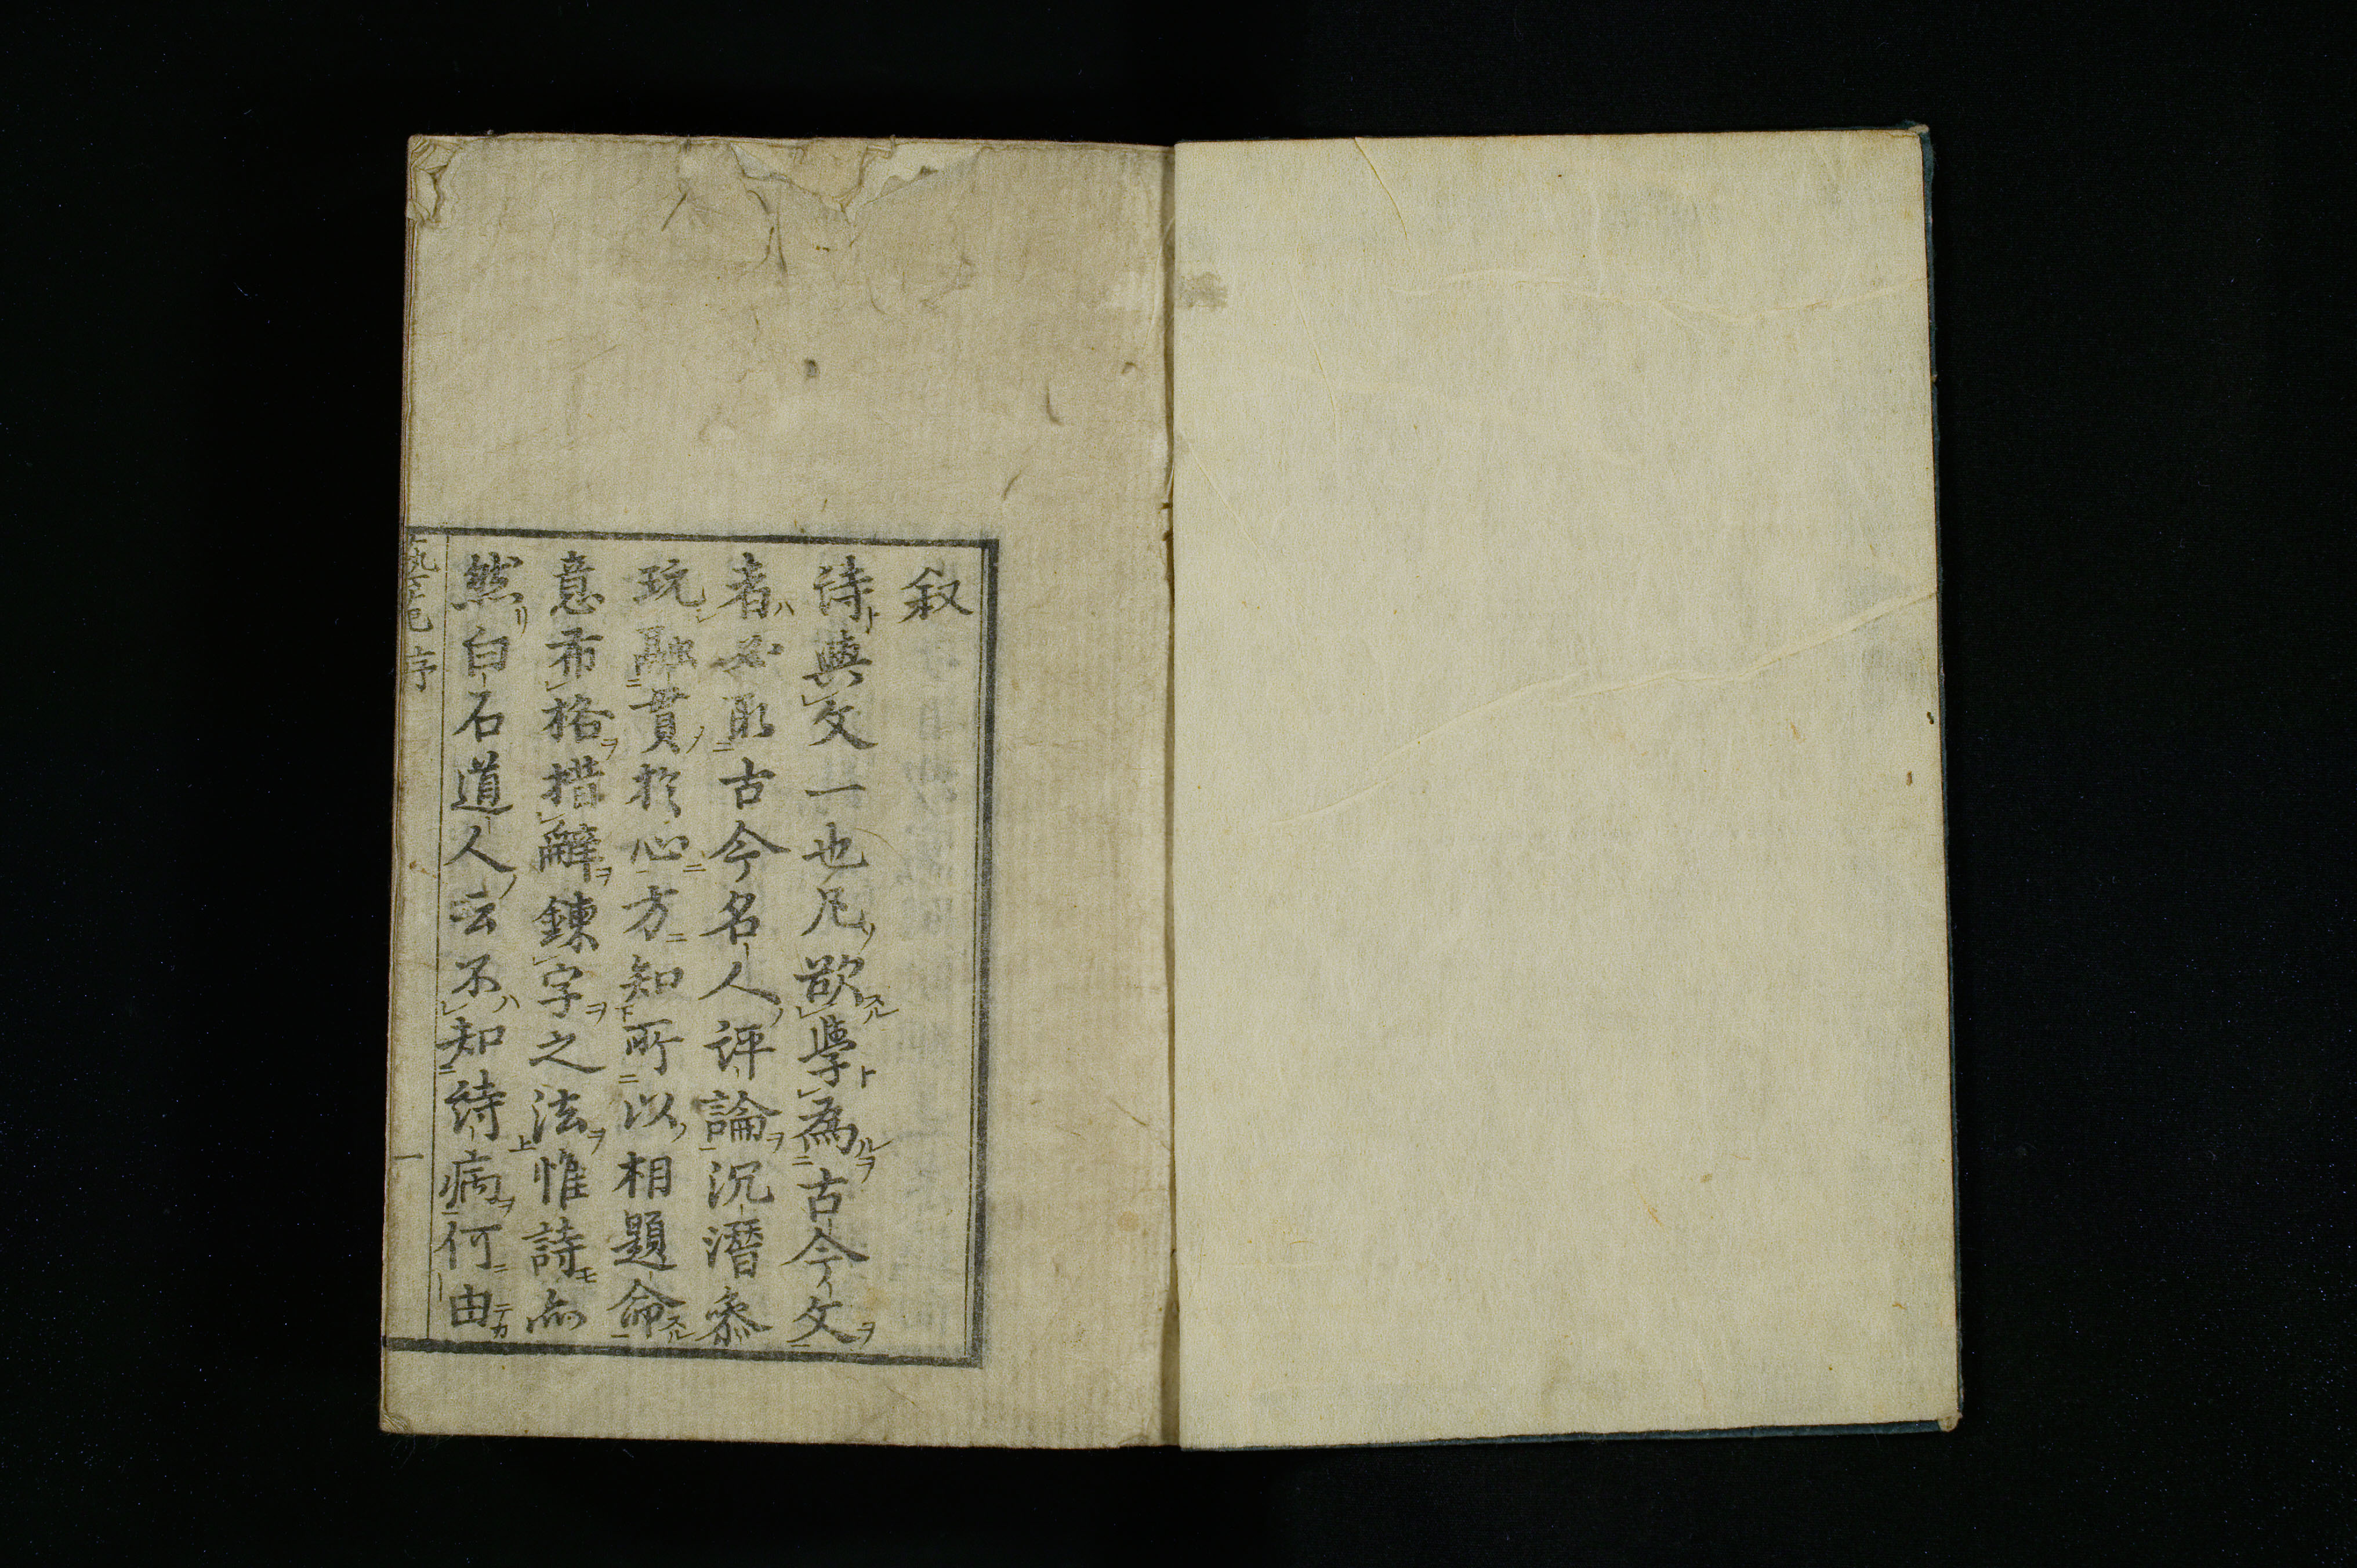 叙
詩與文一也凡欲學為古今文
者必取古今名人評論沉潛叅
玩融貫於心方知所以相題命
意布格措辭錬字之法惟詩亦
然白石道人云不知詩病何由
序
一